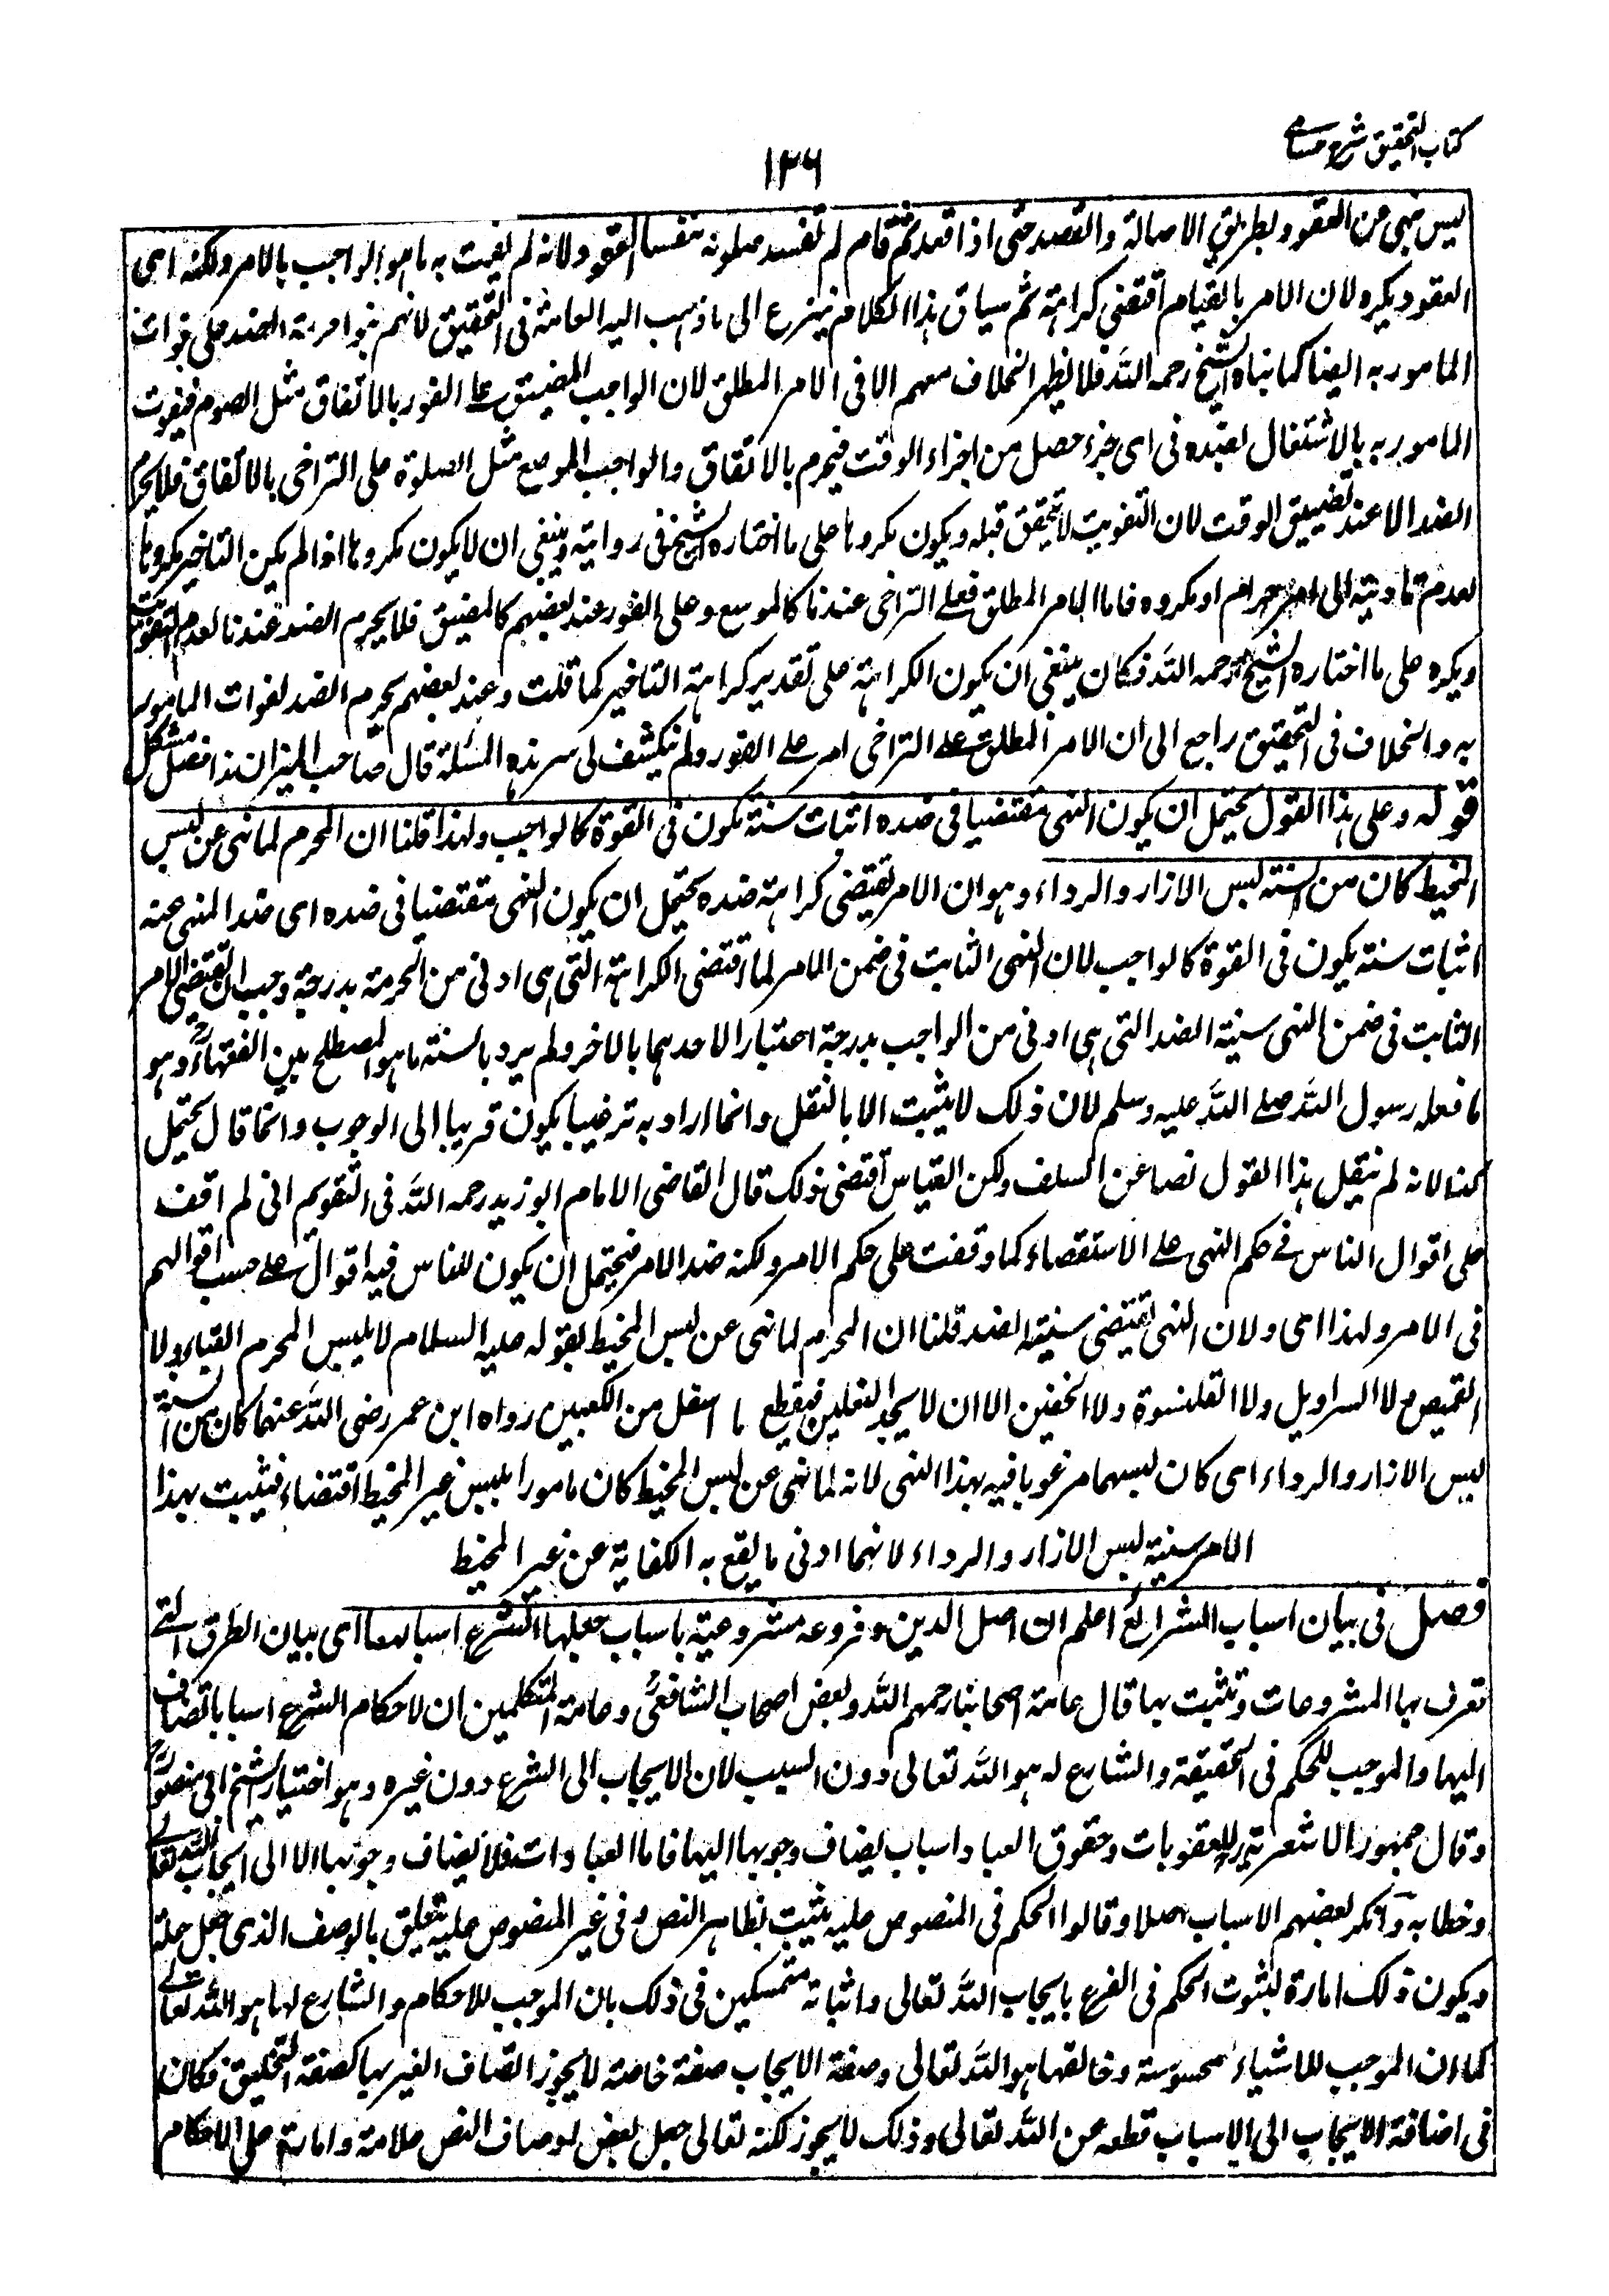 كتاب التحقيق شرح حسامى
١٣٦
ليس نهى عن القعود بطريق الاصالة والقصد حتى اذا قعد ثم قام لم تفسد صلوته بنفس القعود لانه لم يفت به ما هو الواجب بالامر ولكنه اى
القعود يكره لان الامر بالقيام اقتضى كراهته ثم سياق هذا الكلام ينزع الى ما ذهب اليه العامة فى التحقيق لانهم بنوا حرمة الضد على فوات
المامور به ايضا كما بناه الشيخ رحمه الله فلا يظهر الخلاف معهم الا فى الامر المطلق لان الواجب المضيق على الفور بالاتفاق مثل الصوم فيفوت
المامور به بالاشتغال بضده فى اى جزء حصل من اجزاء الوقت فيحرم بالاتفاق والواجب الموسع مثل الصلوة على التراخى بالاتفاق فلا يحرم
الضد الا عند تضييق الوقت لان التفويت لا يتحقق قبله ويكون مكروها على ما اختاره الشيخ فى رواية وينبغى ان لا يكون مكروها اذا لم يكن التاخير مكروها
لعدم تاديته الى امر حرام او مكروه فاما الامر المطلق فعلى التراخى عندنا كالموسع وعلى الفور عند بعضهم كالمضيق فلا يحرم الضد عندنا لعدم التفويت
ويكره على ما اختاره الشيخ رحمه الله فكان ينبغى ان يكون الكراهة على تقدير كراهة التاخير كما قلت وعند بعضهم يحرم الضد لفوات المامور
به والخلاف فى التحقيق راجع الى ان الامر المطلق على التراخى ام على الفور ولم ينكشف لى سر هذه المسئلة قال صاحب الميزان هذا فصل مشكل
قوله وعلى هذا القول يحتمل ان يكون النهى مقتضيا فى ضده اثبات سنة يكون فى القوة كالواجب ولهذا قلنا ان المحرم لما نهى عن لبس
المخيط كان من السنة لبس الازار والرداء وهو ان الامر يقتضى كراهة ضده يحتمل ان يكون النهى مقتضيا فى ضده اى ضد المنهى عنه
اثبات سنة يكون فى القوة كالواجب لان النهى الثابت فى ضمن الامر لما اقتضى الكراهة التى هى ادنى من الحرمة بدرجة وجب ان يقتضى الامر
الثابت فى ضمن النهى سنية الضد التى هى ادنى من الواجب بدرجة اعتبارا لاحدهما بالاخر ولم يرد بالسنة ما هو المصطلح بين الفقهاء وهو
ما فعله رسول الله صلى الله عليه وسلم لان ذلك لا يثبت الا بالنقل وانما اراد به ترغيبا يكون قريبا الى الوجوب وانما قال يحتمل
كذا لانه لم ينقل هذا القول نصا عن السلف ولكن القياس اقتضى ذلك قال القاضى الامام ابو زيد رحمه الله فى التقويم انى لم اقف
على اقوال الناس فى حكم النهى على الاستقصاء كما وقفت على حكم الامر ولكنه ضد الامر فيحتمل ان يكون للناس فيه اقوال على حسب اقوالهم
فى الامر ولهذا اى ولان النهى يقتضى سنية الضد قلنا ان المحرم لما نهى عن لبس المخيط بقوله عليه السلام لا يلبس المحرم القباء ولا
القميص ولا السراويل ولا القلنسوة ولا الخفين الا ان لا يجد النعلين فيقطع ما اسفل من الكعبين رواه ابن عمر رضى الله عنهما كان من السنة
لبس الازار والرداء اى كان لبسهما مرغوبا فيه بهذا النهى لانه لما نهى عن لبس المخيط كان مامورا بلبس غير المخيط اقتضاء فيثبت بهذا
الامر سنية لبس الازار والرداء لانهما ادنى ما يقع به الكفاية عن غير المخيط
فصل فى بيان اسباب الشرائع اعلم ان اصل الدين وفروعه مشروعية باسباب جعلها الشرع اسبابها اى بيان الطرق التى
تعرف بها المشروعات وتثبت بها قال عامة اصحابنا رحمهم الله وبعض اصحاب الشافعى وعامة المتكلمين ان لاحكام الشرع اسبابا تضاف
اليها والموجب للحكم فى الحقيقة والشارع له هو الله تعالى دون السبب لان الايجاب الى الشرع دون غيره وهو اختيار الشيخ ابى منصور
وقال جمهور الاشعرية للعقوبات وحقوق العباد اسباب يضاف وجوبها اليها فاما العبادات فلا يضاف وجوبها الا الى ايجاب الله تعالى
وخطابه وانكر بعضهم الاسباب اصلا وقالوا الحكم فى المنصوص عليه يثبت بظاهر النص وفى غير المنصوص عليه يتعلق بالوصف الذى جعل علة
ويكون ذلك امارة لثبوت الحكم فى الفرع بايجاب الله تعالى واثباته متمسكين فى ذلك بان الموجب للاحكام والشارع لها هو الله تعالى
كما ان الموجب للاشياء محسوسة وخالقها هو الله تعالى وصفة الايجاب صفة خاصة لا يجوز اتصاف الغير بها كصفة التخليق فكان
فى اضافة الايجاب الى الاسباب قطعه عن الله تعالى وذلك لا يجوز لكنه تعالى جعل بعض اوصاف النص علامة وامارة على الاحكام